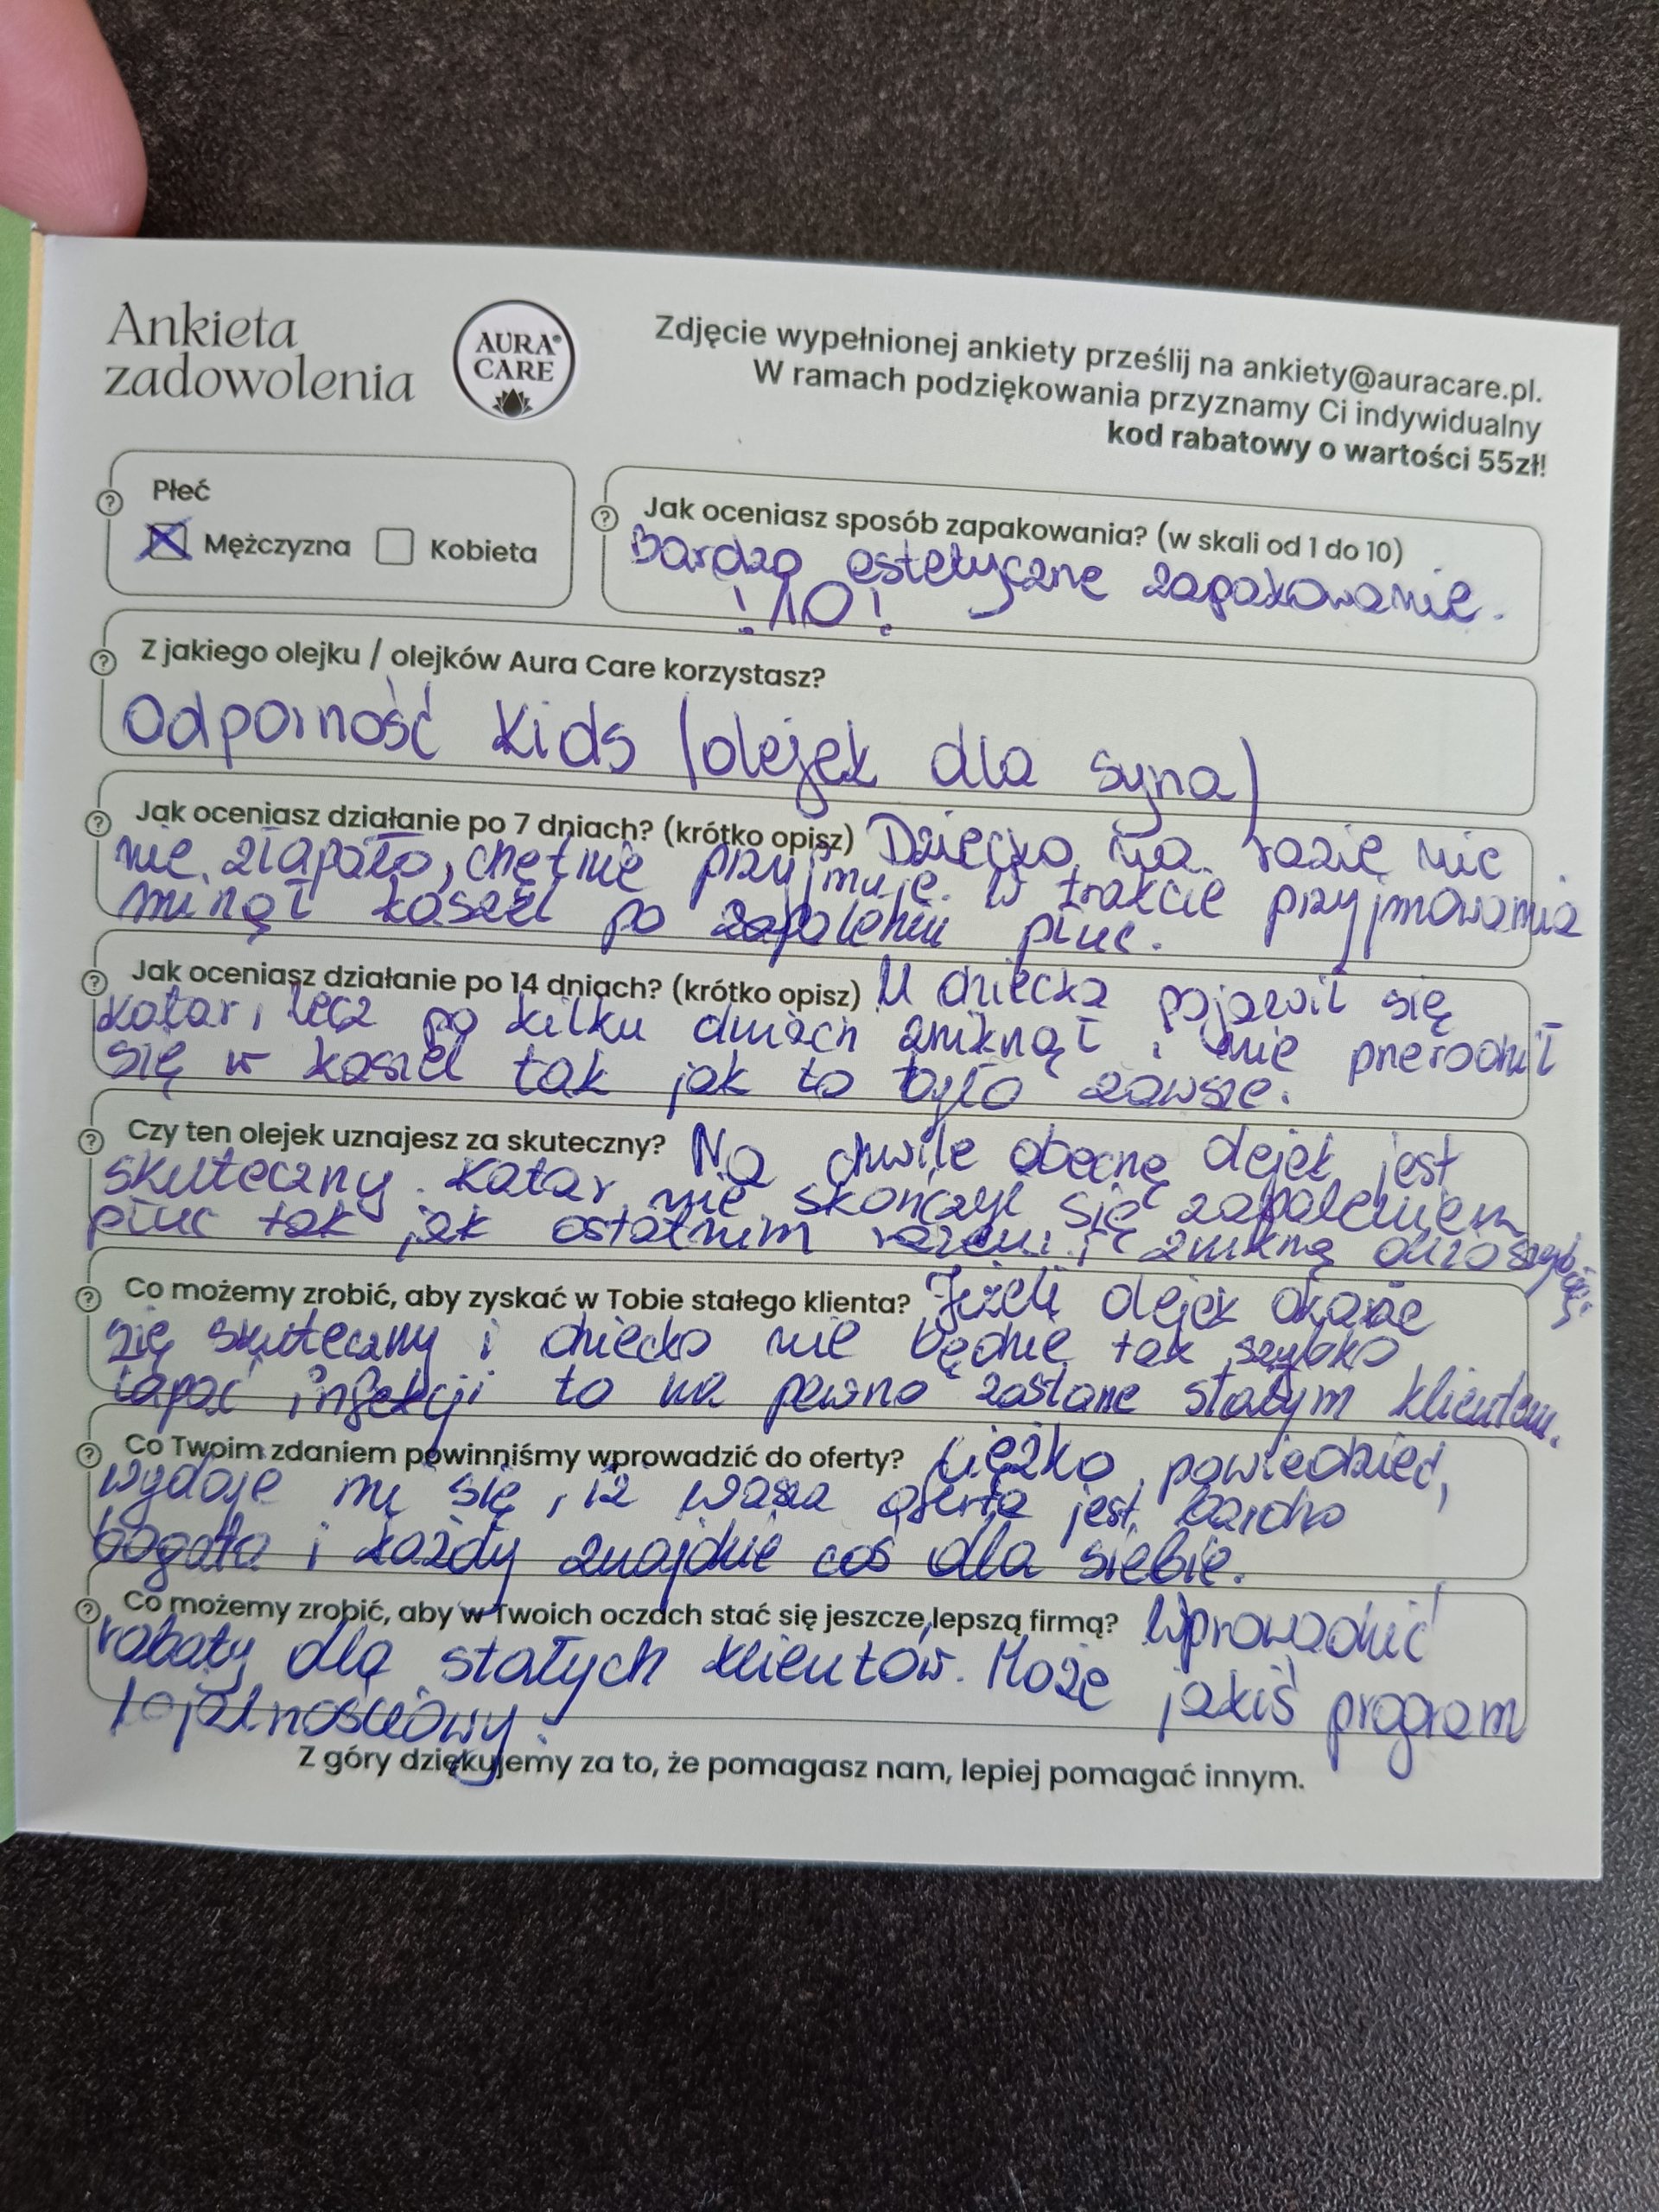 Ankieta
zadowolenia
AURA®
CARE
Zdjęcie wypełnionej ankiety prześlij na ankiety@auracare.pl.
W ramach podziękowania przyznamy Ci indywidualny
kod rabatowy o wartości 55zł!
Płeć
Mężczyzna Kobieta
Jak oceniasz sposób zapakowania? (w skali od 1 do 10)
Bardzo estetyczne zapakowanie.
! 10 !
Z jakiego olejku / olejków Aura Care korzystasz?
Odporność Kids (olejek dla syna)
Jak oceniasz działanie po 7 dniach? (krótko opisz) Dziecko na razie nic
nie złapało, chętnie przyjmuje. W trakcie przyjmowania
minął kaszel po zapaleniu płuc.
Jak oceniasz działanie po 14 dniach? (krótko opisz) U dziecka pojawił się
katar, lecz po kilku dniach zniknął i nie przerodził
się w kaszel tak jak to było zawsze.
Czy ten olejek uznajesz za skuteczny? Na chwile obecną olejek jest
skuteczny. Katar nie skończył się zapaleniem
płuc tak jak ostatnim razem i znikną dużo szybciej.
Co możemy zrobić, aby zyskać w Tobie stałego klienta? Jeżeli olejek okaże
się skuteczny i dziecko nie będzie tak szybko
łapać infekcji to na pewno zostanę stałym klientem.
Co Twoim zdaniem powinniśmy wprowadzić do oferty? Ciężko powiedzieć,
wydaje mi się, iż wasza oferta jest bardzo
bogata i każdy znajdzie coś dla siebie.
Co możemy zrobić, aby w Twoich oczach stać się jeszcze lepszą firmą? Wprowadzić
rabaty dla stałych klientów. Może jakiś program
lojalnościowy.
Z góry dziękujemy za to, że pomagasz nam, lepiej pomagać innym.